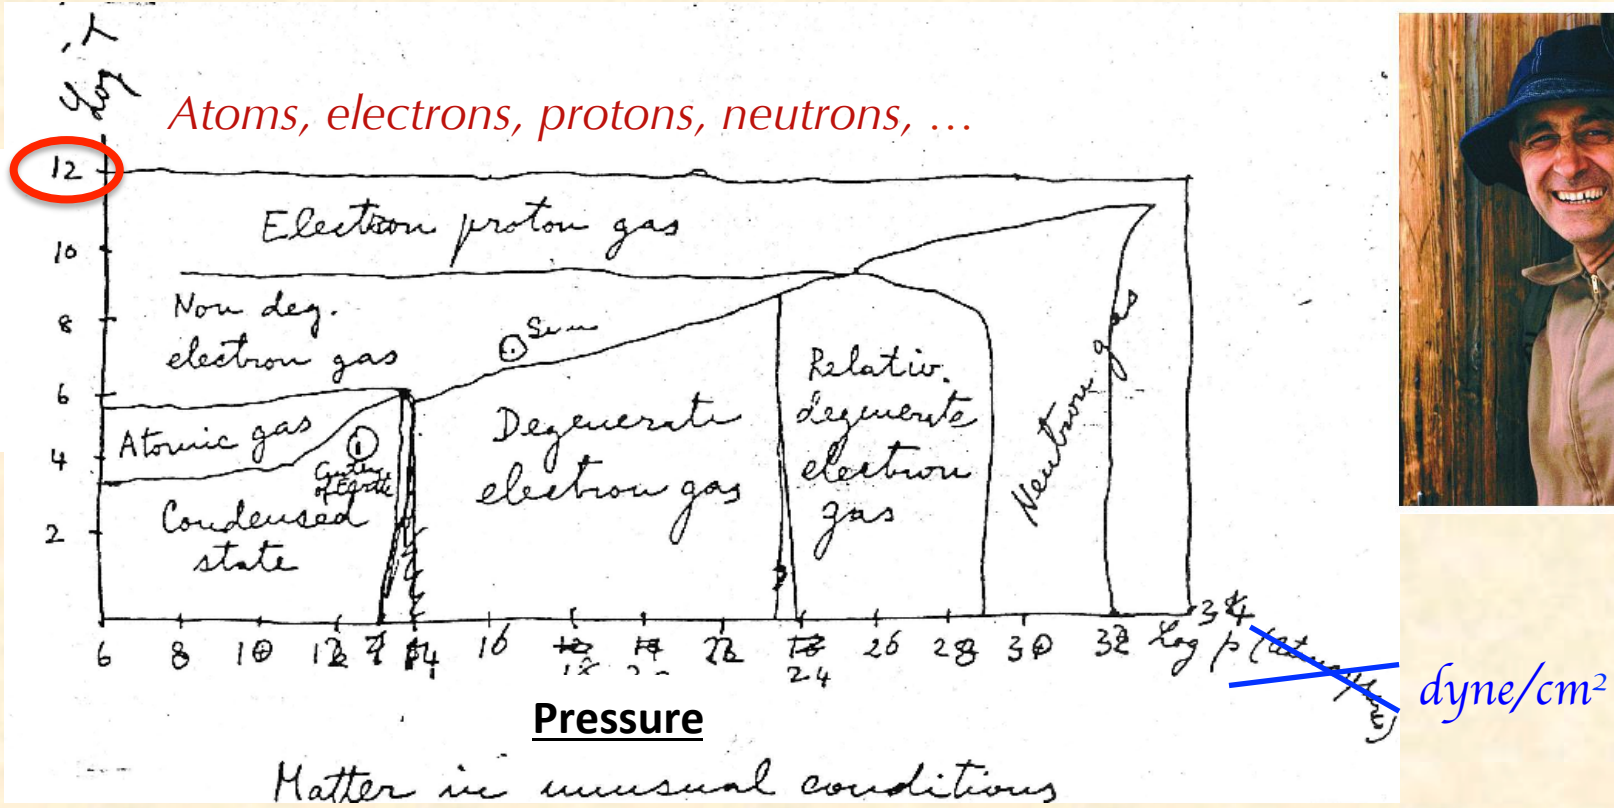 Log T
Atoms, electrons, protons, neutrons, …
12
Electron proton gas
10
Non deg.
electron gas
8
Sun
6
Atomic gas
4
Center
of Earth
Condensed
state
2
Degenerate
electron gas
Relativ.
degenerate
electron
gas
Neutron gas
6 8 10 12 14 16 18 20 22 24 26 28 30 32 34
Log p (atmospheres)
dyne/cm²
Pressure
Matter in unusual conditions